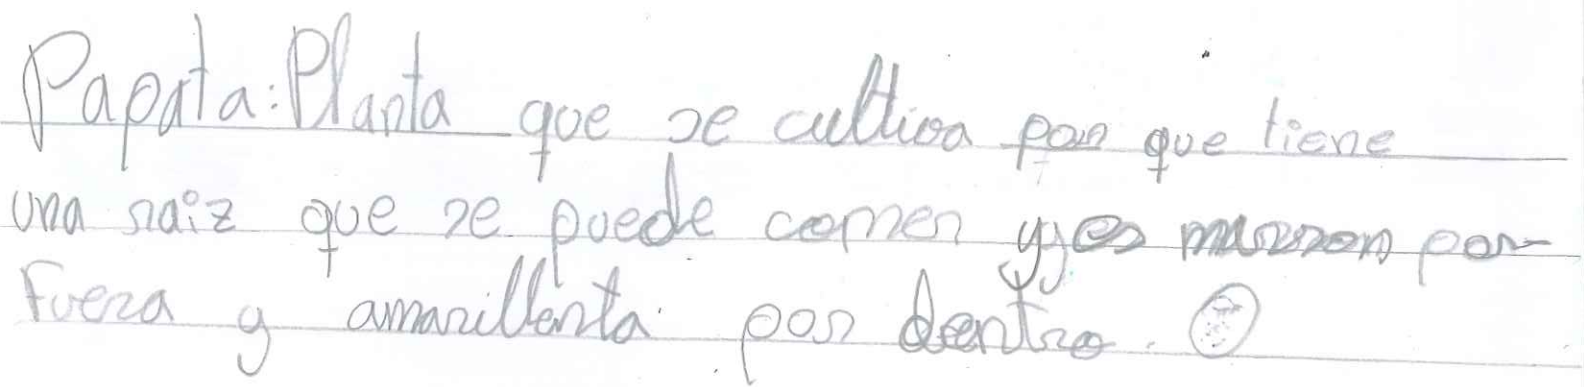 Papata: Planta que se cultiva por que tiene
una raiz que se puede comer y es marron por
fuera y amarillenta por dentro.